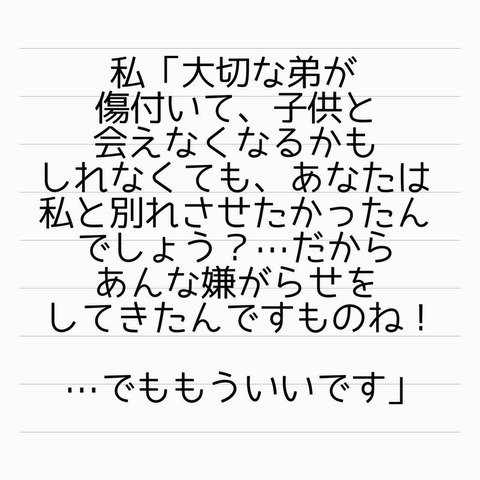 私「大切な弟が
傷付いて、子供と
会えなくなるかも
しれなくても、あなたは
私と別れさせたかったん
でしょう？…だから
あんな嫌がらせを
してきたんですものね！
…でももういいです」